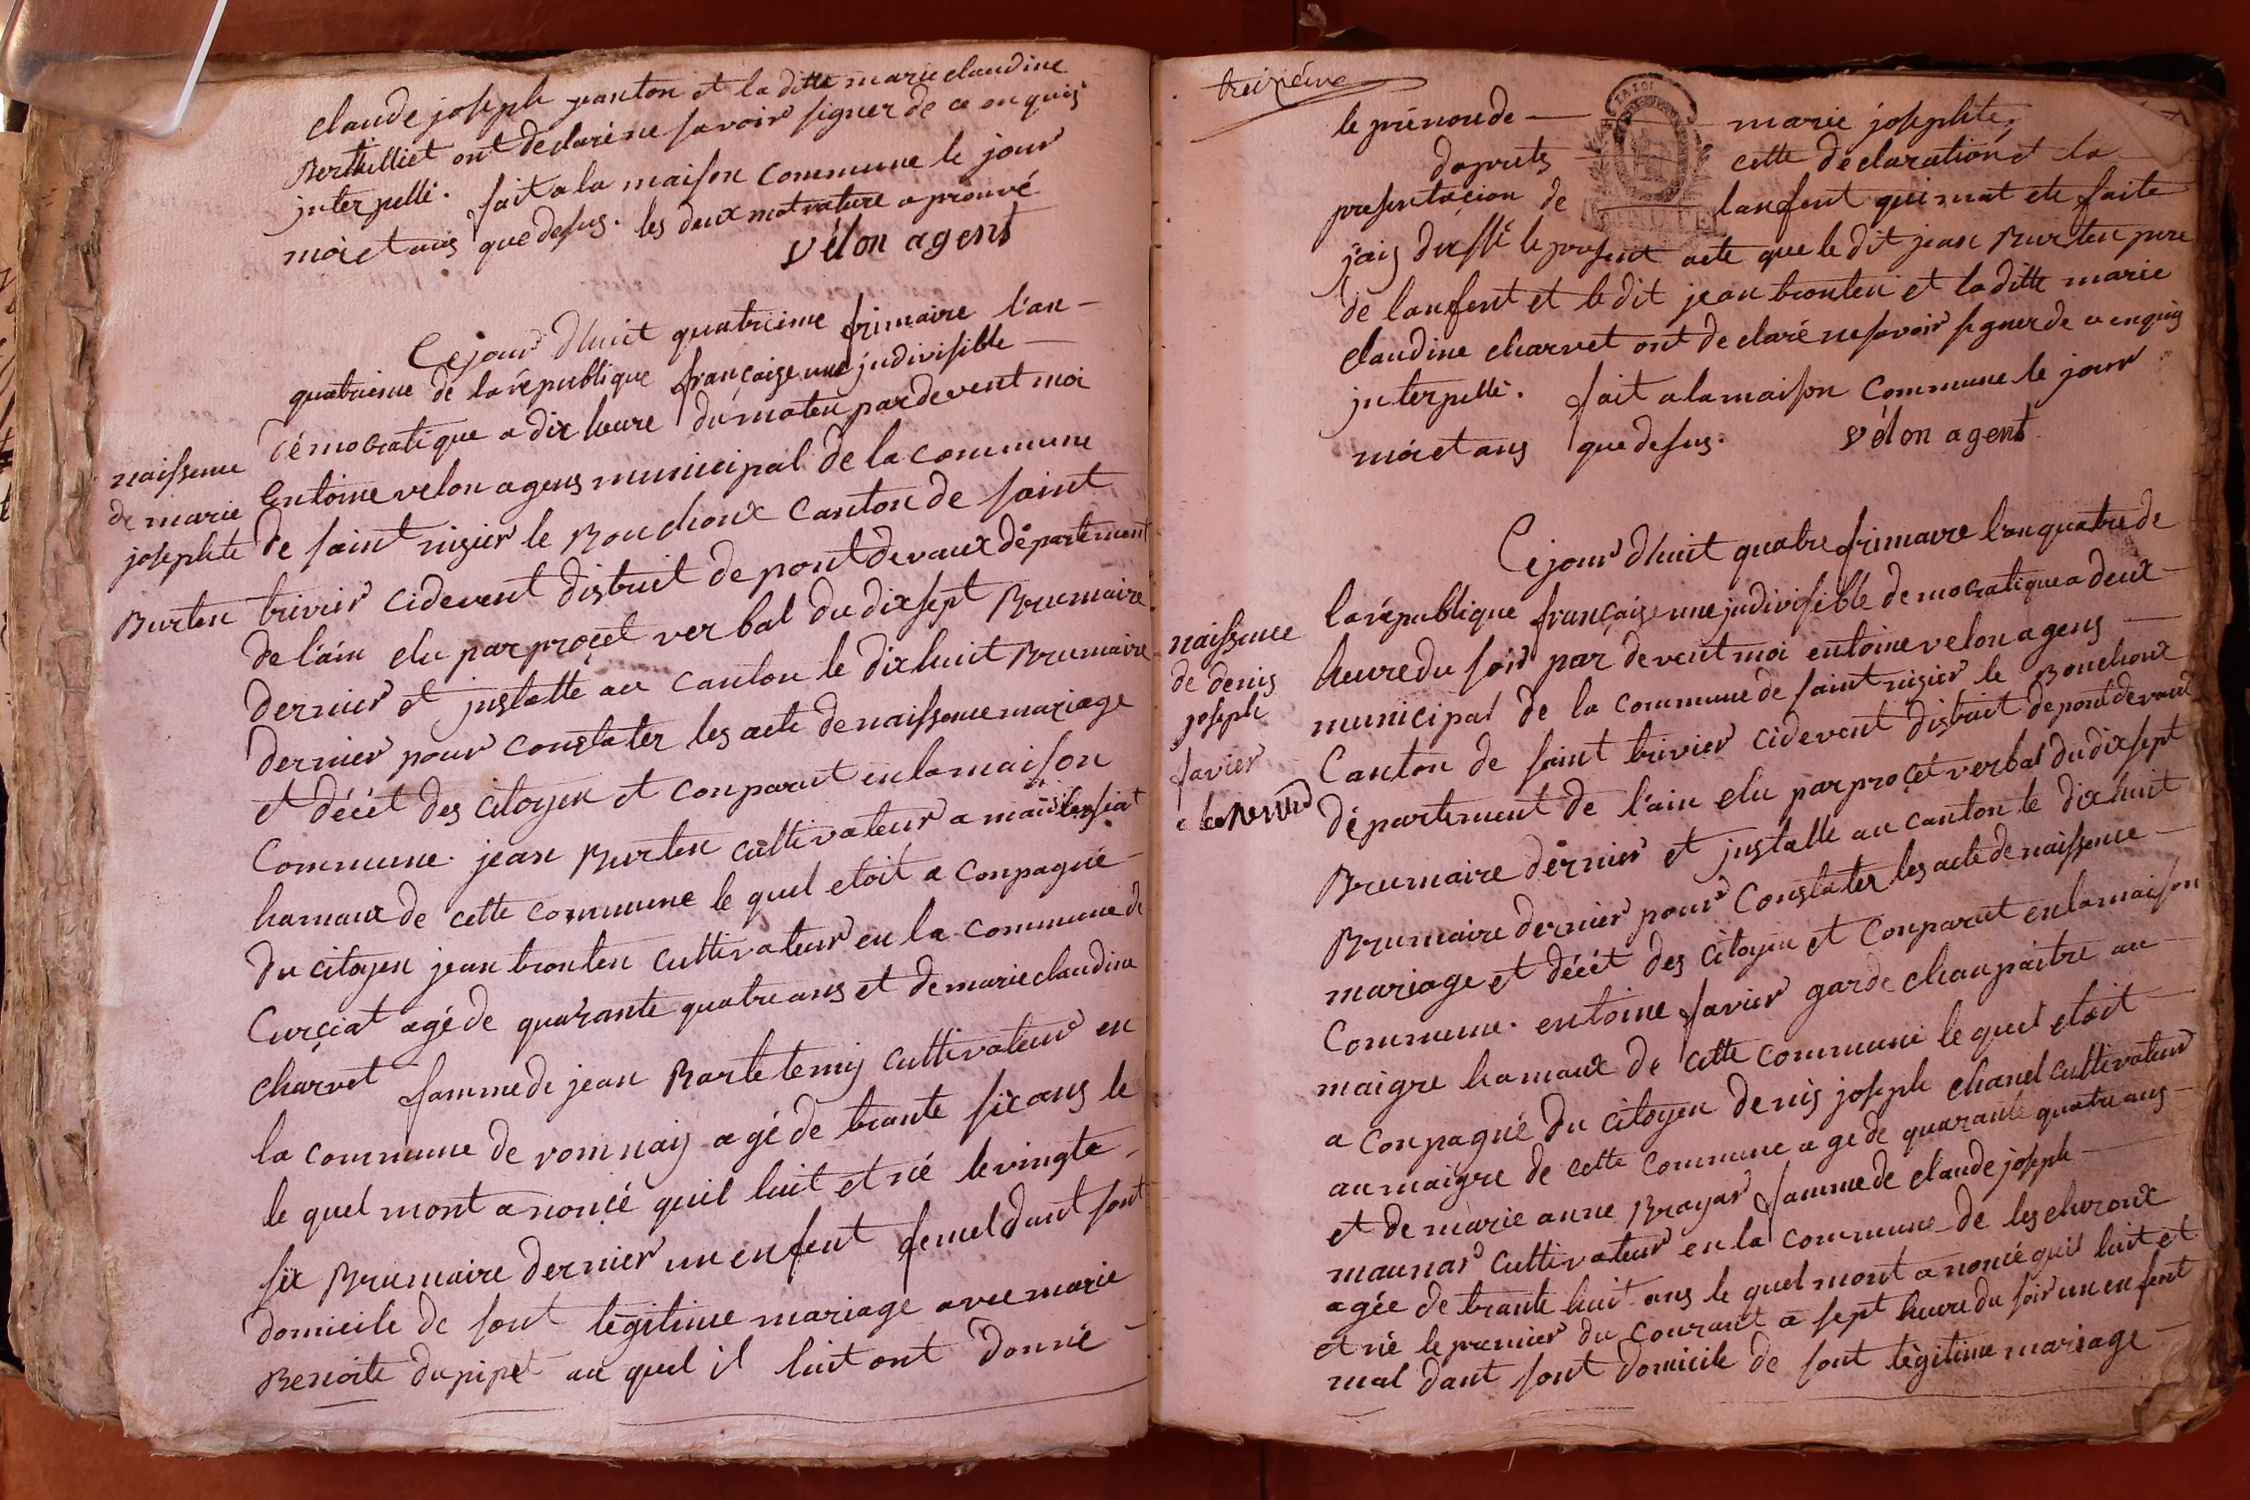 claude joseph panton et la ditte marie claudine
Berthilliet ont declaré ne savoir signer de ce enquis
interpellé. fait a la maison commune le jour
moi et ans que desus. les deux mot rature aprouvé
vélon agent
Cejour dhuit quatrieme frimaire l'an
quatrieme de la république francaise une judivisible
démocratique a dix heure du maten par devent moi
naissence
Entoine velon agens municipal de la commune
de marie
de saint nizier le Bouchoux canton de saint
josephte
Burten
trivier cidevent district de pont devaux département
de l'ain elu par procet verbal du dix sept Brumaire
dernier et jnstallé au canton le dix huit Brumaire
dernier pour constater les acte de naissence mariage
et décét des citoyen et conparut en la maison
commune. jean Burten cultivateur a
hamaux de cette commune le quel etoit a conpagné
du citoyen jean tronten cultivateur en la commune de
Curciat agé de quarante quatre ans et de marie claudine
charvet famme de jean Bartelemy cultivateur en
la commune de romnay agé de trante six ans le
le quel mont anoncé quil luit et né le vingte
six Brumaire dernier un enfent femel dant sont
domicile de sont légitime mariage avec marie
Benoite dupipet au quel il luit ont donné
treizième
le prénon de marie josephte
daprets cette déclaration et la
presentacion de lanfent qui mat ete faite
jais dressé le present acte que le dit jean Burten pere
de lanfent et le dit jean tronten et la ditte marie
claudine charvet ont declaré ne savoir signer de ce enquis
interpellé. fait a la maison commune le jour
moi et ans que desus. vélon agent
Cejour dhuit quatre frimaire l'an quatre de
la république française une judivisible democratique a deux
naissence
heure du soir par devent moi entoine velon agens
de denis
municipal de la commune de saint nizier le Bouchoux
joseph
Canton de saint trivier cidevent district de pont devaux
favier
département de l'ain elu par procet verbal du dix sept
Brumaire dérnier et jnstallé au canton le dix huit
Brumaire dernier pour constater les acte de naissence
mariage et décét des citoyen et conparut en la maison
commune. entoine favier garde chanpaitre au
maigre hamaux de cette commune le quel etoit
a conpagné du citoyen denis joseph chanel cultivateur
au maigre de cette commune agé de quarante quatre ans
et de marie anne Brayar famme de claude joseph
maunar cultivateur en la commune de lescheroux
agée de trante huit ans le quel mont anoncé quil luit et
et né le premier du courant a sept heure du soir un enfent
mal dant sont domicile de sont légitime mariage